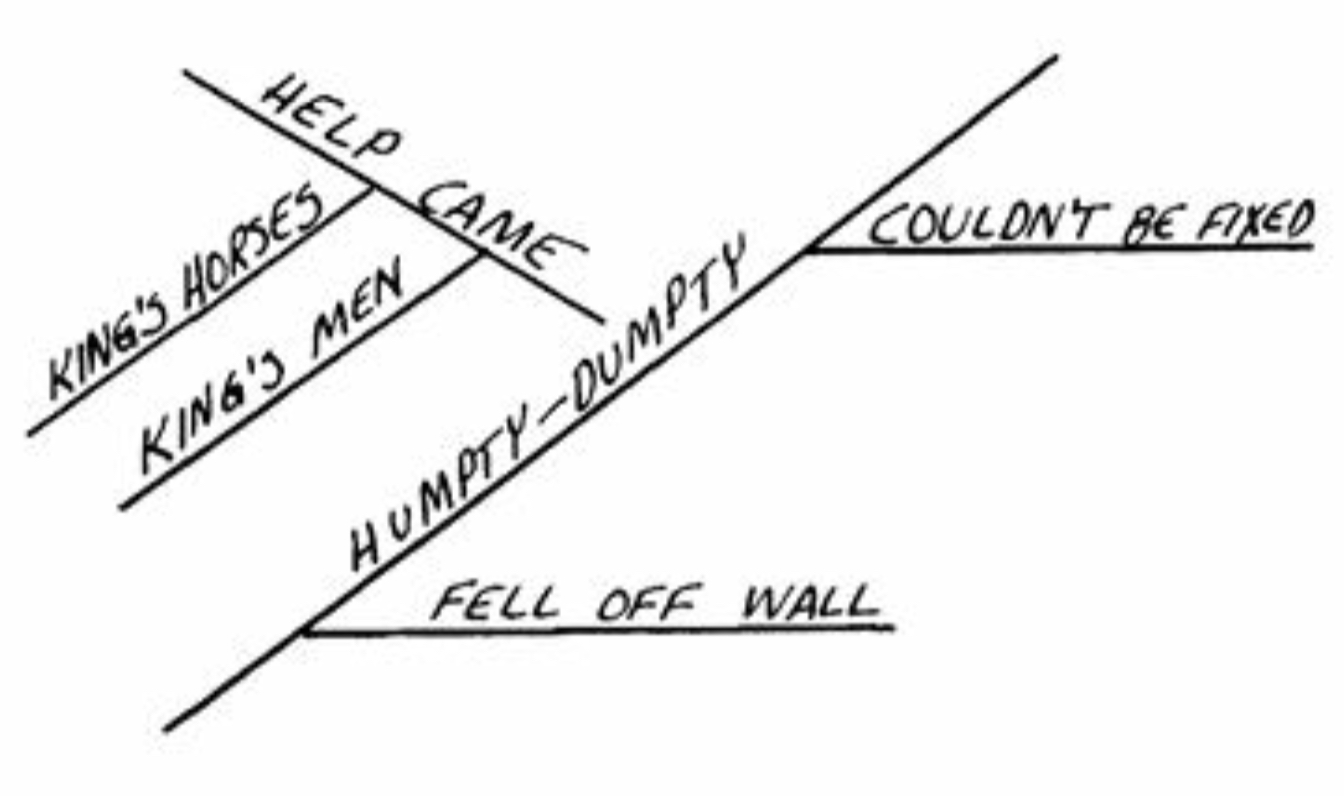 HELP CAME
KING'S HORSES
KING'S MEN
HUMPTY-DUMPTY
COULDN'T BE FIXED
FELL OFF WALL